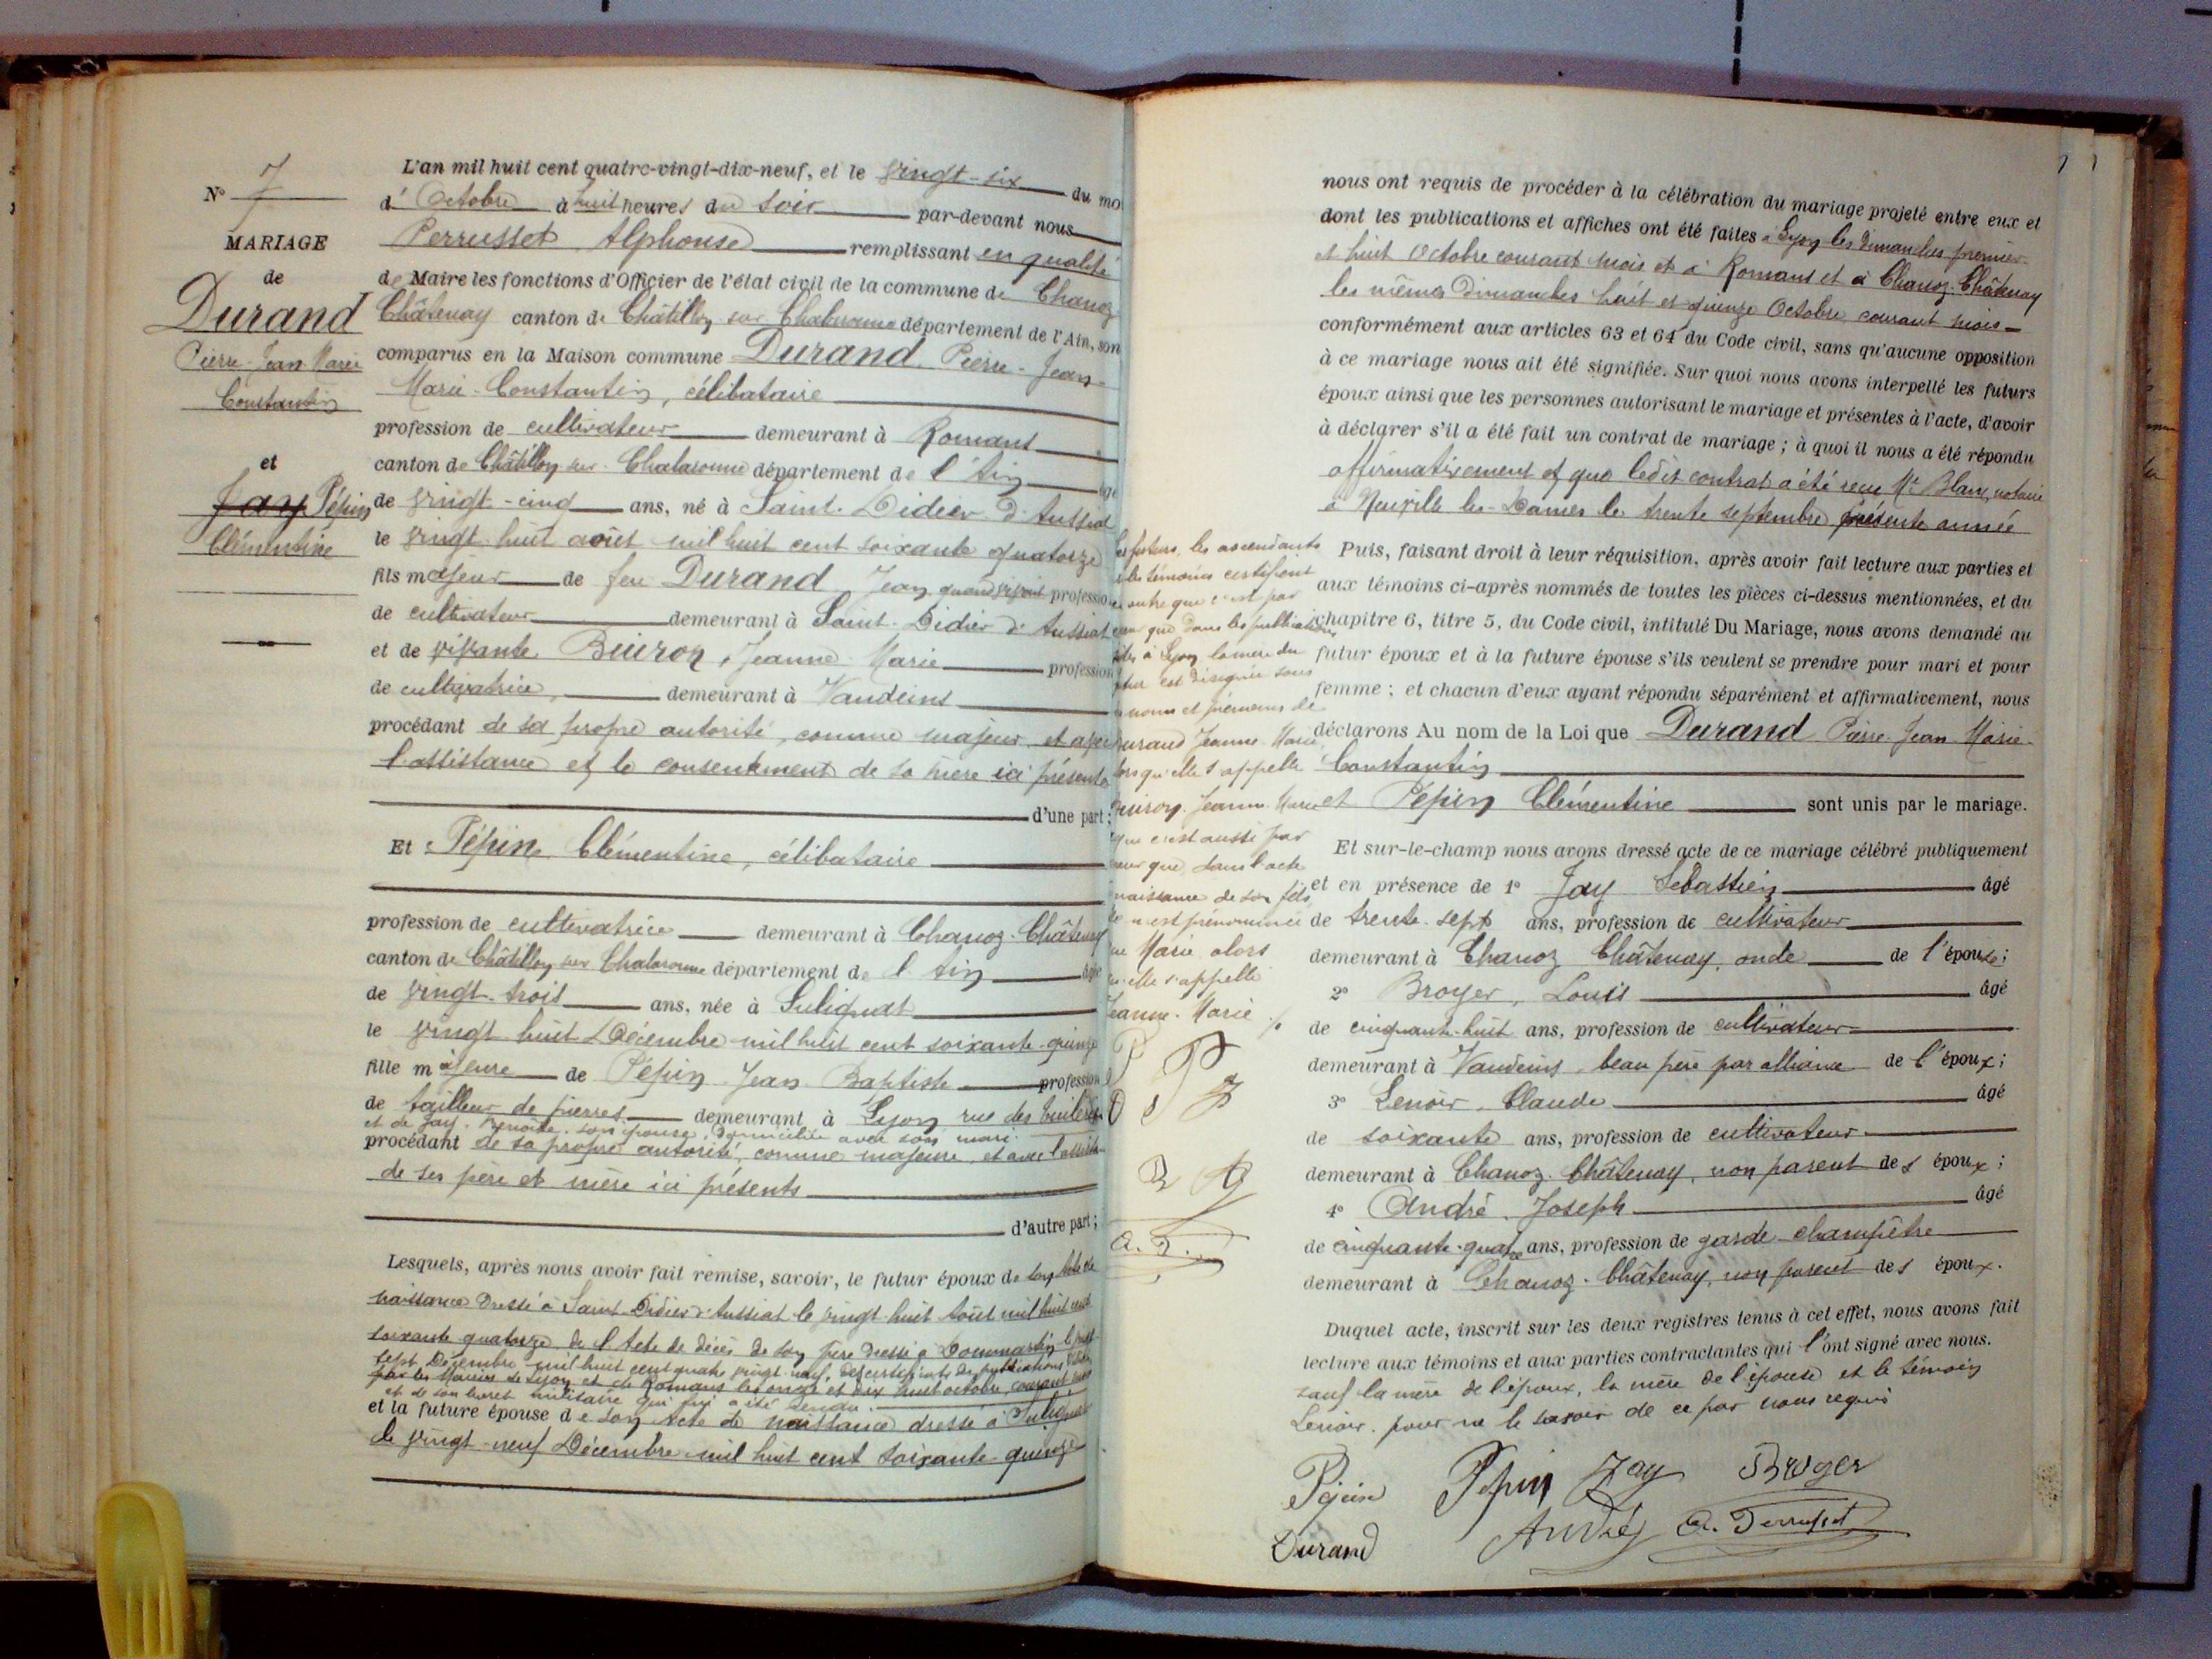 N° 7
MARIAGE
de
Durand
Pierre-Jean Marie
Constantin
et
Jay Pépin
Clémentine
L'an mil huit cent quatre-vingt-dix-neuf, et le vingt-six du mo
d' Octobre à huit heures du soir par-devant nous
Perrusset Alphonse remplissant en qualité
de Maire les fonctions d'Officier de l'état civil de la commune de Chanoz
Châtenay canton de Châtillon sur Chalaronne département de l'Ain, son
comparus en la Maison commune Durand Pierre-Jean-
Marie-Constantin, célibataire
profession de cultivateur demeurant à Romans
canton de Châtillon sur Chalaronne département de l'Ain âgé
de vingt-cinq ans, né à Saint-Didier d'Aussiat
le vingt-huit août mil huit cent soixante quatorze
fils majeur de feu Durand Jean quand vivait profession
de cultivateur demeurant à Saint-Didier d'Aussiat
et de vivante Buiron, Jeanne Marie profession
de cultivatrice, demeurant à Vandeins
procédant de sa propre autorité, comme majeur et avec
l'assistance et le consentement de sa mère ici présente
d'une part;
Et Pépin Clémentine, célibataire
profession de cultivatrice demeurant à Chanoz-Châtenay
canton de Châtillon sur Chalaronne département de l'Ain âgée
de vingt-trois ans, née à Sulignat
le vingt huit Décembre mil huit cent soixante-quinze
fille majeure de Pépin Jean Baptiste profession
de tailleur de pierres demeurant à Lyon rue des
et de Jay, son épouse, domiciliée avec son mari
procédant de sa propre autorité, comme majeure, et avec l'assista
de ses père et mère ici présents
d'autre part;
Lesquels, après nous avoir fait remise, savoir, le futur époux de son Acte de
naissance dressé à Saint-Didier d'Aussiat le vingt huit Août mil huit cent
soixante quatorze, de l'Acte de décès de son père dressé à Dommartin le
sept Décembre mil huit cent quatre vingt-neuf, des certificats de publications
par les Mairies de Lyon et de Romans les onze et dix huit octobre, courant mois
et de son livret militaire qui lui a été rendu
et la future épouse de son Acte de naissance dressé à Sulignat
le vingt-neuf Décembre mil huit cent soixante-quinze
Les futurs, les ascendants
et les témoins certifient
en outre que c'est par
erreur que dans les publications
faites à Lyon la mère du
futur est désignée sous
les noms et prénoms de
Durand Jeanne-Marie
lorsqu'elle s'appelle
Buiron Jeanne-Marie
que c'est aussi par
erreur que dans l'acte
naissance de son fils
elle n'est prénommée
que Marie alors
qu'elle s'appelle
Jeanne-Marie
P P
D J
B A
A. P.
nous ont requis de procéder à la célébration du mariage projeté entre eux et
dont les publications et affiches ont été faites à Lyon les dimanches premier
et huit Octobre courant mois et à Romans et à Chanoz-Châtenay
les mêmes Dimanches huit et quinze Octobre, courant mois
conformément aux articles 63 et 64 du Code civil, sans qu'aucune opposition
à ce mariage nous ait été signifiée. Sur quoi nous avons interpellé les futurs
époux ainsi que les personnes autorisant le mariage et présentes à l'acte, d'avoir
à déclarer s'il a été fait un contrat de mariage; à quoi il nous a été répondu
affirmativement et que ledit contrat a été reçu Me Blanc, notaire
à Neuville les-Dames le trente septembre présente année
Puis, faisant droit à leur réquisition, après avoir fait lecture aux parties et
aux témoins ci-après nommés de toutes les pièces ci-dessus mentionnées, et du
chapitre 6, titre 5, du Code civil, intitulé Du Mariage, nous avons demandé au
futur époux et à la future épouse s'ils veulent se prendre pour mari et pour
femme; et chacun d'eux ayant répondu séparément et affirmativement, nous
déclarons Au nom de la Loi que Durand Pierre-Jean Marie-
Constantin
et Pépin Clémentine sont unis par le mariage.
Et sur-le-champ nous avons dressé acte de ce mariage célébré publiquement
et en présence de 1° Jay Sebastien âgé
de trente-sept ans, profession de cultivateur
demeurant à Chanoz Châtenay, oncle de l'épouse;
2° Broyer, Louis âgé
de cinquante-huit ans, profession de cultivateur
demeurant à Vandeins, beau père par alliance de l'époux;
3° Lenoir, Claude âgé
de soixante ans, profession de cultivateur
demeurant à Chanoz-Châtenay, non parent des époux;
4° André, Joseph âgé
de cinquante-quatre ans, profession de garde-champêtre
demeurant à Chanoz-Châtenay, non parent des époux.
Duquel acte, inscrit sur les deux registres tenus à cet effet, nous avons fait
lecture aux témoins et aux parties contractantes qui l'ont signé avec nous.
sauf la mère de l'époux, la mère de l'épouse et le témoin
Lenoir, pour ne le savoir de ce par nous requis
Pépin Pépin Jay Broyer
Durand André A. Perrusset